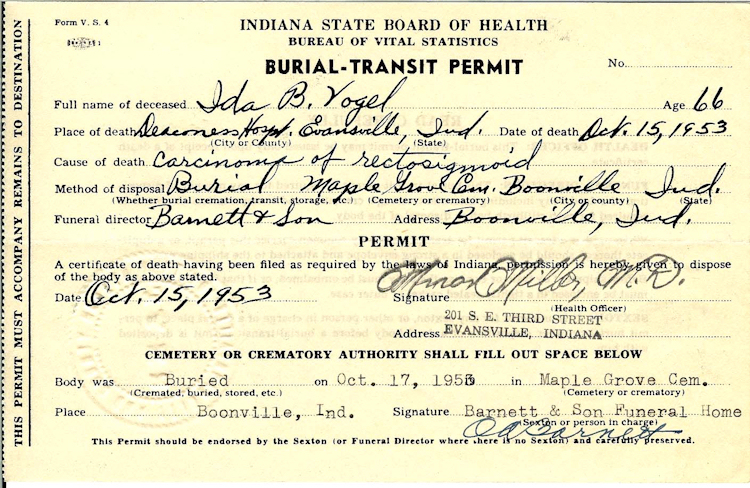 Form V. S. 4
INDIANA STATE BOARD OF HEALTH
BUREAU OF VITAL STATISTICS
BURIAL-TRANSIT PERMIT
No.
Full name of deceased Ida B. Vogel Age 66
Place of death Deaconess Hosp. Evansville, Ind. Date of death Oct. 15, 1953
(City or County) (State)
Cause of death carcinoma of rectosigmoid
Method of disposal Burial Maple Grove Cem. Boonville Ind.
(Whether burial cremation, transit, storage, etc.) (Cemetery or crematory) (City or county) (State)
Funeral director Barnett & Son Address Boonville, Ind.
PERMIT
A certificate of death having been filed as required by the laws of Indiana, permission is hereby given to dispose
of the body as above stated.
Date Oct. 15, 1953 Signature Miller, M.D.
(Health Officer)
Address 201 S. E. THIRD STREET
EVANSVILLE, INDIANA
CEMETERY OR CREMATORY AUTHORITY SHALL FILL OUT SPACE BELOW
Body was Buried on Oct. 17, 1953 in Maple Grove Cem.
(Cremated, buried, stored, etc.) (Cemetery or crematory)
Place Boonville, Ind. Signature Barnett & Son Funeral Home
(Sexton or person in charge)
Barnett
This Permit should be endorsed by the Sexton (or Funeral Director where there is no Sexton) and carefully preserved.
THIS PERMIT MUST ACCOMPANY REMAINS TO DESTINATION